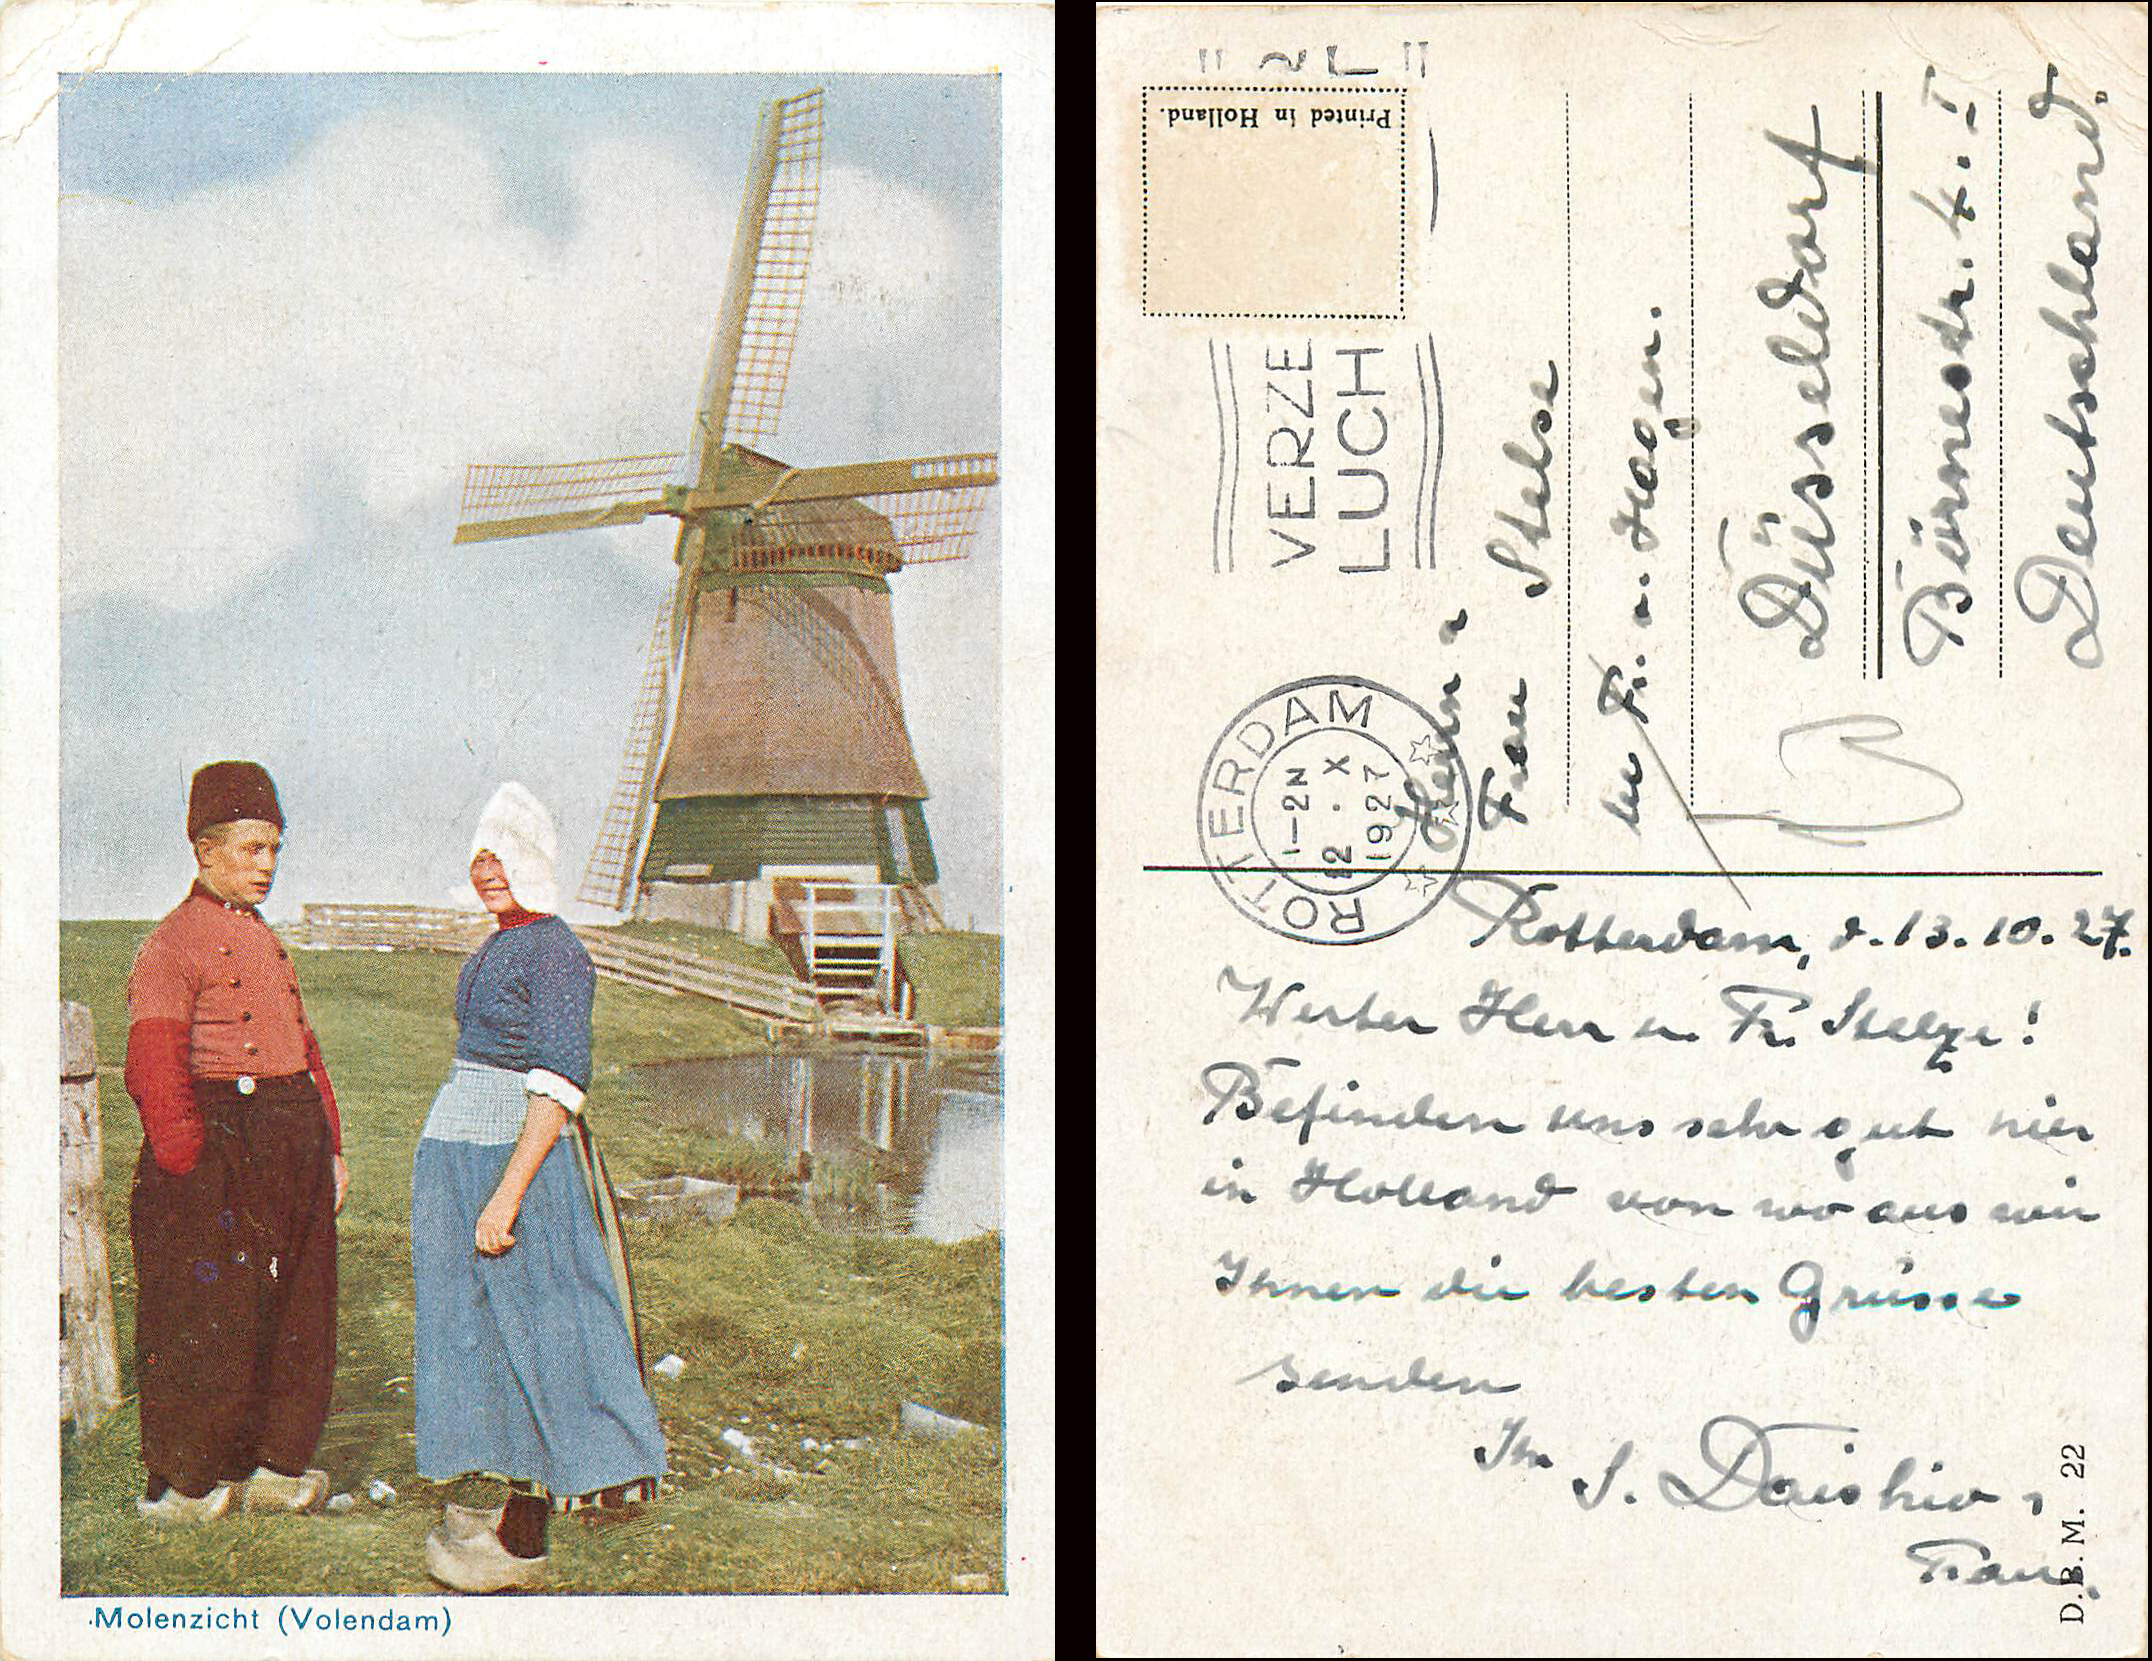 Molenzicht (Volendam)
Printed in Holland.
VERZE
LUCH
ROTTERDAM
1-2N
12.X
1927
Herrn u
Frau Stelse
bei Fr. v. Hagen.
Düsseldorf
Börnestr. 4. I
Deutschland.
Rotterdam, d. 13.10.27.
Werter Herr u. Fr. Stelze!
Befinden uns sehr gut hier
in Holland von wo aus wir
Ihnen die besten Grüsse
senden
Ihr
Frau.
D.B.M. 22